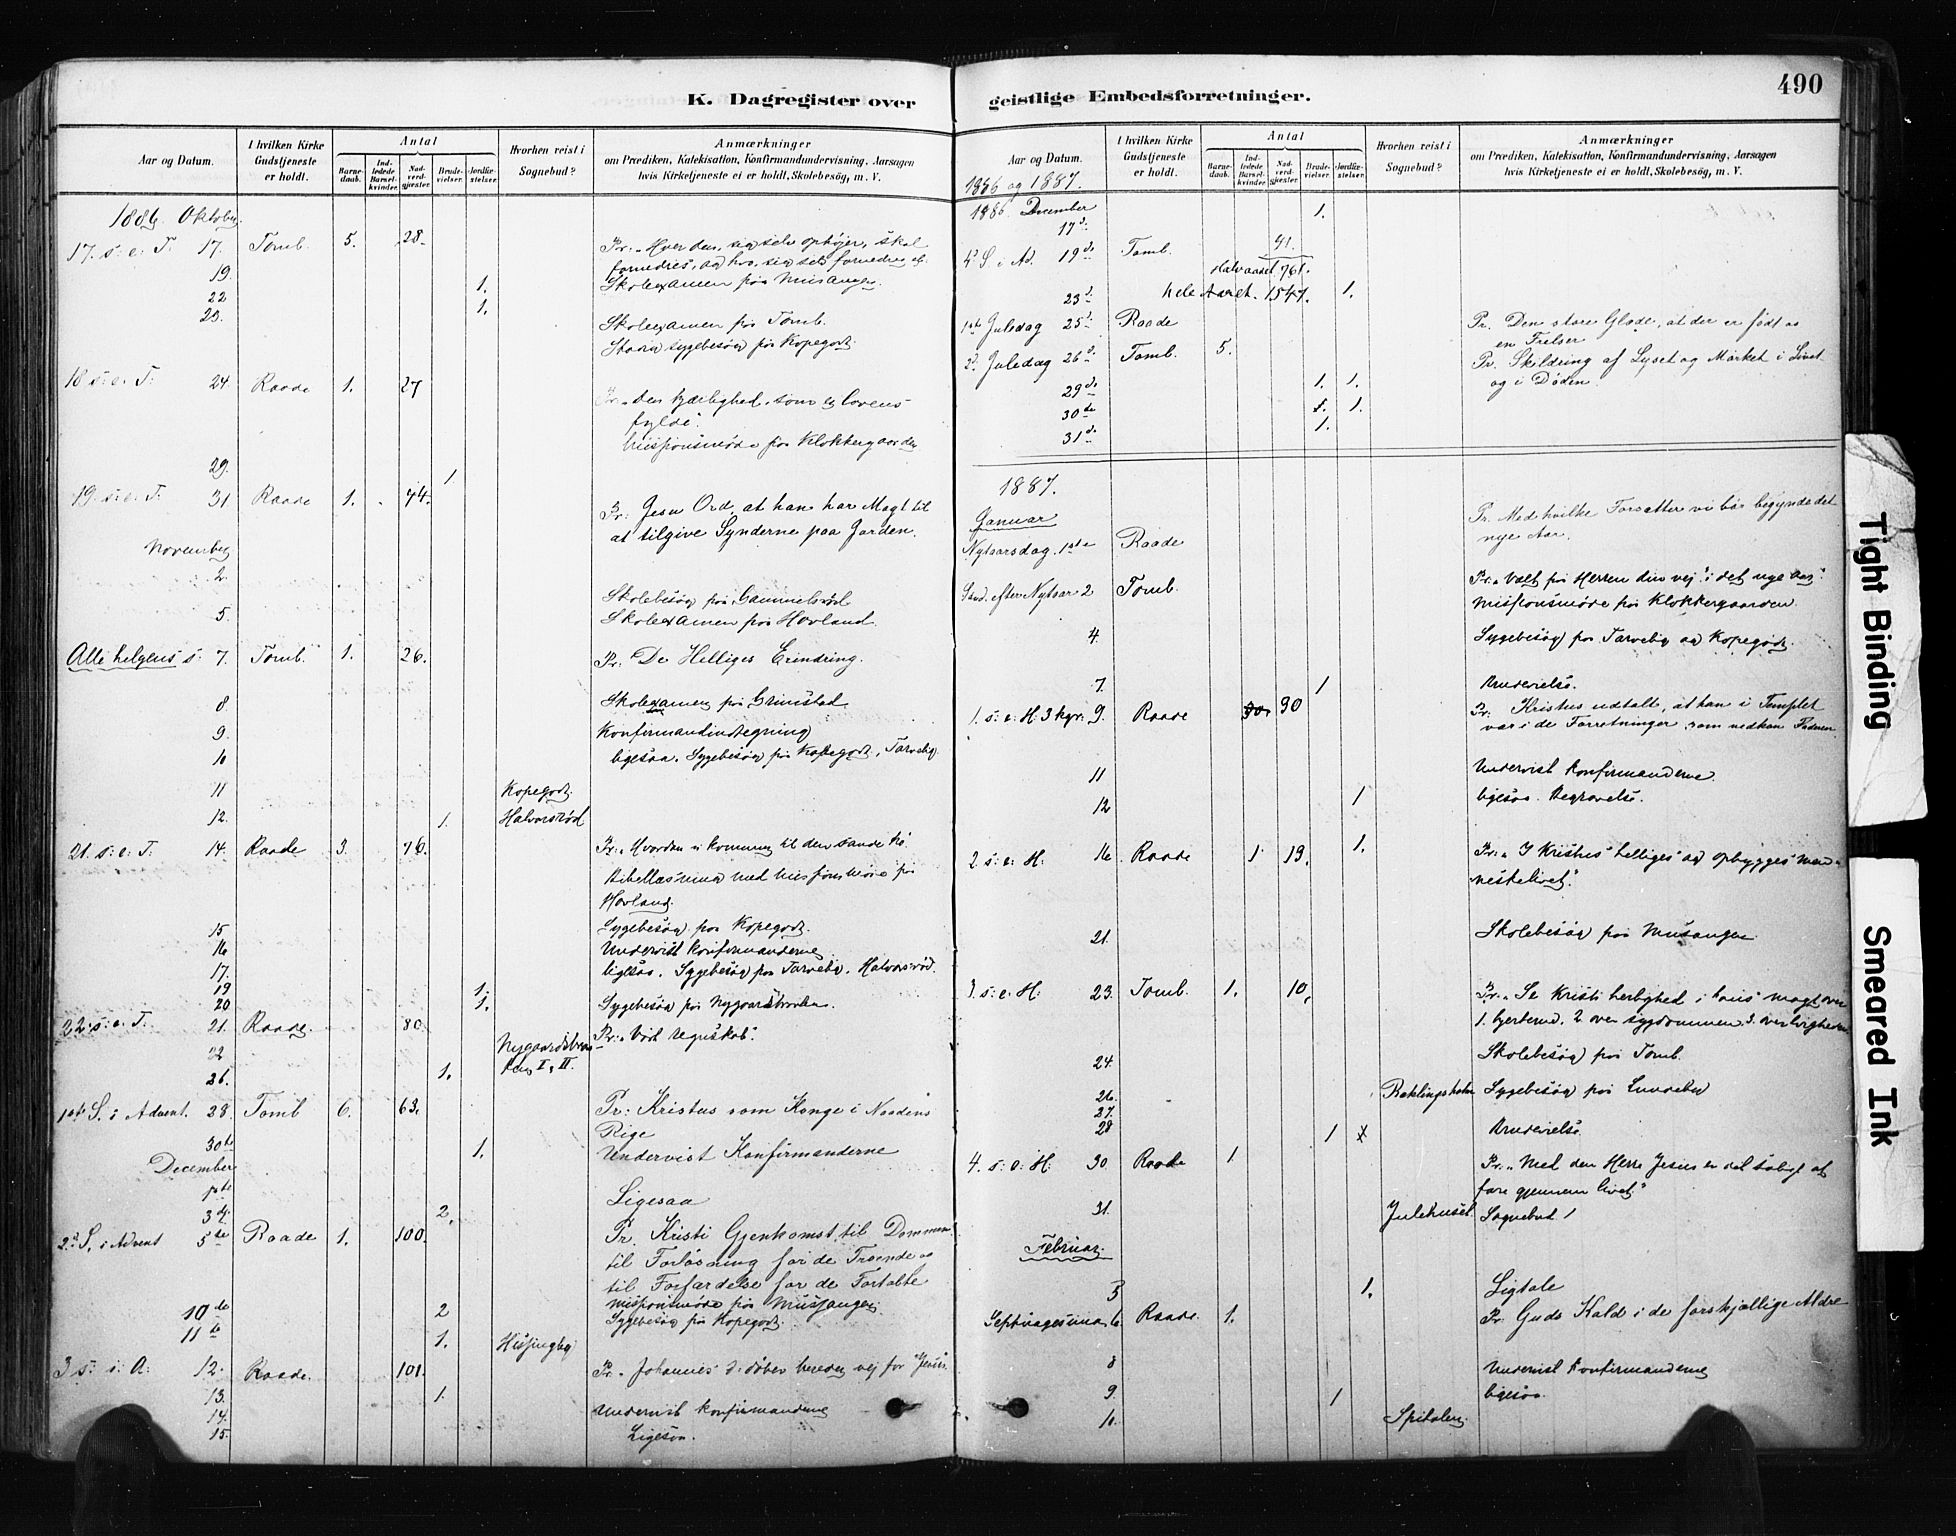 K. Dagregister over
Aar og Datum.
I hvilken Kirke Gudstjeneste er holdt.
Antal
Barnedaab.
Indledede Barselkvinder.
Nadverdgjester.
Brudevielser.
Jordfæstelser.
Hvorhen reist i Sognebud?
Anmærkninger
om Prædiken, Katekisation, Konfirmandundervisning, Aarsagen
hvis Kirketjeneste ei er holdt, Skolebesög, m. V.
1886 Oktober
17. s. e. T. 17. Tomb. 5. 28. Pr. "Hver den, sig selv ophøjer, skal
fornedres", og hvo, sig selv fornedrer
19. 1. Skoleexamen paa Missingen.
22 1.
23. Skoleexamen paa Tomb.
sygebesøg paa Kopegodt.
18 s. e. T. 24. Raade 1. 27 Pr. "den Kjærlighed, som er lovens
fylde".
Missionsmøde paa Klokkergaarden
29. 1
19. s. e. T. 31 Raade 1. 74. Pr: Jesu Ord, at han har Magt til
at tilgive Synderne paa Jorden.
November
2. Skolebesøg paa Gammelsrød
5. Skoleexamen paa Hovland
Alle helgens s: 7. Tomb. 1. 26. Pr: De Helliges Erindring.
8 Skoleexamen paa Grimstad
9. Konfirmandindtegning
10 ligesaa. Sygebesøg paa Kopegodt, Tarveby
11 Kopegodt.
12. 1. Halvorsrød
21. s. e. T. 14. Raade 3. 76. Pr. "Hvordan vi kommer til den sande
Bibellæsning med missionsmøde paa
Hovland.
15 Sygebesøg paa Kopegodt.
16 Undervist konfirmanderne
17. ligesaa. Sygebesøg paa Tarveby. Halvorsrød.
19 1.
20 1. Sygebesøg paa Nygaardsbraaten.
22. s. e. T. 21. Raade. 80. Pr. "Vort regnskab".
22 Nygaardsbraaten I, II.
26. 1.
1ste S. i Advent. 28. Tomb 6. 63. Pr: Kristus som Konge i Naadens
Rige
30te 1. Undervist Konfirmanderne
December
1ste Ligesaa
3 4. 2.
2d S. i Advent 5te Raade 1. 100. Pr. Kristi Gjenkomst til Dommen
til Forløsning for de Troende og
til Forfærdelse for de Fortabte
10de 2 missionsmøde paa Missingen.
Sygebesøg paa Kopegodt.
11te 1. Hissingby
3 s. i. A. 12. Raade. 101. Pr. "Johannes d. døber bereder vej for Jesus.
13. 1.
14. Undervist konfirmanderne
15. Ligesaa.
490
geistlige Embedsforretninger.
Aar og Datum.
I hvilken Kirke Gudstjeneste er holdt.
Antal
Barnedaab.
Indledede Barselkvinder.
Nadverdgjester.
Brudevielser.
Jordfæstelser.
Hvorhen reist i Sognebud?
Anmærkninger
om Prædiken, Katekisation, Konfirmandundervisning, Aarsagen
hvis Kirketjeneste ei er holdt, Skolebesög, m. V.
1886 og 1887.
1886 December 1.
17d.
4d S. i Ad. 19de Tomb. 41.
Halvaaret 761.
23d. Hele Aaret. 1547. 1.
1ste Juledag 25d. Raade Pr. Den store Glæde, at der er født os
en Frelser
2d Juledag 26d. Tomb. 5. Pr. Skildring af Lyset og Mørket i Livet
og i Døden.
29de 1. 1.
30te 1. 1.
31d. 1.
1887.
Januar
Nytaarsdag. 1ste Raade Pr. Med hvilke Forsætter vi bør begynde det
nye Aar.
Sønd. efter Nytaar 2 Tomb. Pr. "Vælt paa Herren din vej" i det nye aar".
missionsmøde paa Klokkergaarden.
4. Sygebesøg paa Tarveby og Kopegodt.
7. 1 Brudevielse.
1. s. e. H. 3 kgr. 9. Raade 90 Pr. Kristus udtalt, at han i Templet
var i de Forretninger, som vedkom Faderen.
11 Undervist konfirmanderne.
12 1 ligesaa. Begravelse.
2. s. e. H. 16 Raade 1 19. 1. Pr. "I Kristus helliges og opbygges menneskelivet".
21. Skolebesøg paa Missingen
3. s. e. H. 23. Tomb. 1. 10. Pr. "Se Kristi herlighed i hans magt over
1. hjerterne. 2 over sygdommen 3. over
24. Skolebesøg paa Tomb.
26. Raklingsholm Sygebesøg paa Lundeby
27.
28 1 Brudevielse
4. s. e. H. 30. Raade 1. Pr. "Med den Herre Jesus er det saligt at
fare gjennem livet."
31. Julehuset. Sognebud 1
Februar.
3 1. Ligtale
Septuagesima 6. Raade. 1. Pr. Guds Kald i de forskjællige Aldre
8 Undervist konfirmanderne
9. 1 ligesaa.
10. Spitalen.
Tight Binding
Smeared Ink